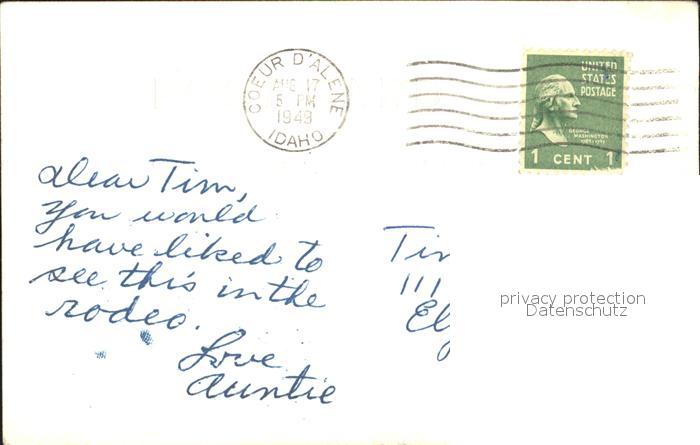 COEUR D'ALENE
AUG 17
5 PM
1949
IDAHO
UNITED
STATES
POSTAGE
GEORGE
WASHINGTON
1 CENT 1
Dear Tim,
You would
have liked to
see this in the
rodeo.
Love
Auntie
Tim
111
El
privacy protection
Datenschutz